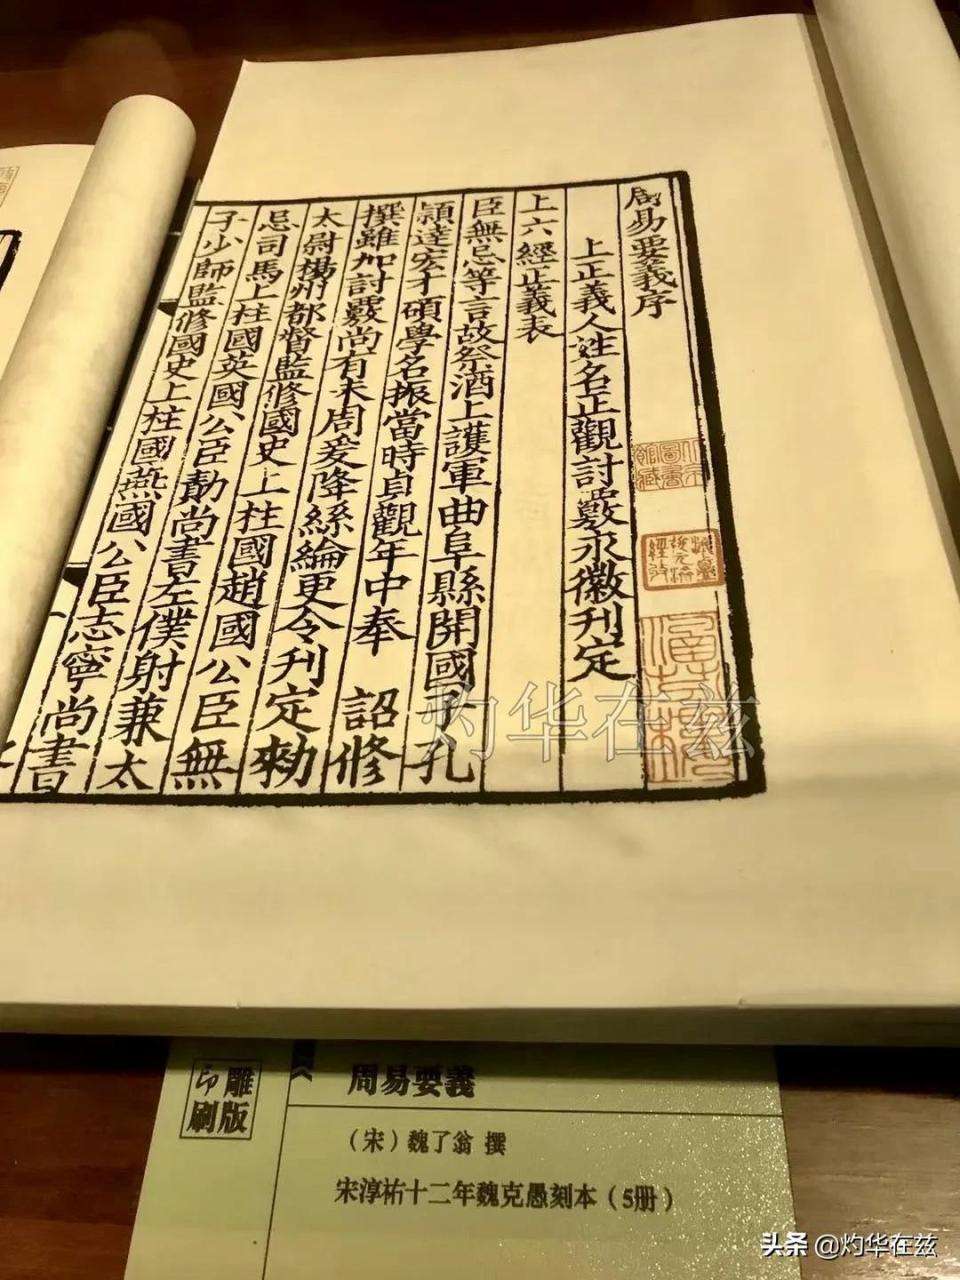 周易要義序
上正義人姓名正觀討覈永徽刊定
上六經正義表
臣無忌等言故祭酒上護軍曲阜縣開國子孔
頴達宏才碩學名振當時貞觀年中奉 詔修
撰雖加討覈尚有未周爰降絲綸更令刊定勑
太尉楊州都督監修國史上柱國趙國公臣無
忌司馬上柱國英國公臣勣尚書左僕射兼太
子少師監修國史上柱國燕國公臣志寧尚書
灼华在兹
雕版
印刷
周易要義
（宋）魏了翁 撰
宋淳祐十二年魏克愚刻本（5册）
头条 @灼华在兹